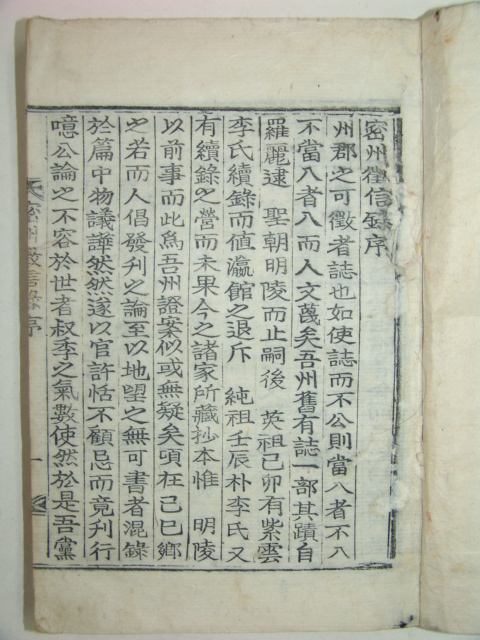 密州徵信錄序
州郡之可徵者誌也如使誌而不公則當八者不八
不當八者八而人文蔑矣吾州舊有誌一部其蹟自
羅麗逮 聖朝明陵而止嗣後 英祖己卯有紫雲
李氏續錄而値瀛館之退斥 純祖壬辰朴李氏又
有續錄之營而未果今之諸家所藏抄本惟 明陵
以前事而此爲吾州證案似或無疑矣頃在己巳鄉
之若而人倡發刋之論至以地望之無可書者混錄
於篇中物議譁然然遂以官許恬不顧忌而竟刋行
噫公論之不容於世者叔季之氣數使然於是吾黨
密州徵信錄序
一